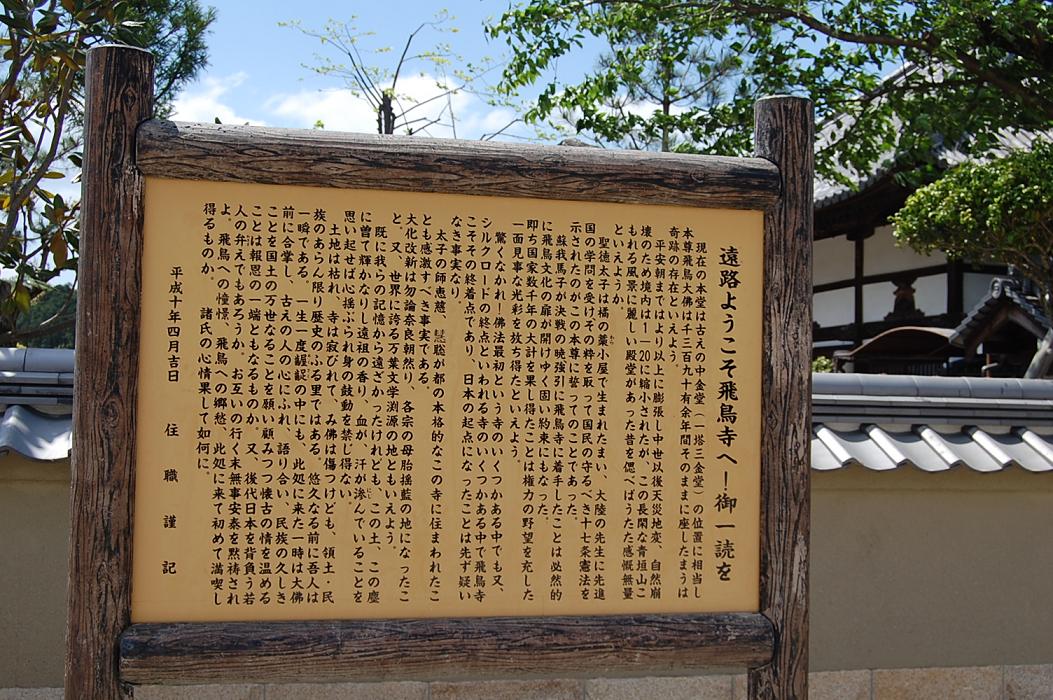 遠路ようこそ飛鳥寺へ！御一読を
現在の本堂は古えの中金堂（一塔三金堂）の位置に相当し
本尊飛鳥大佛は千三百九十有余年間そのままに座したまうは
奇跡の存在といえよう。
平安朝まではより以上に膨張し中世以後天災地変、自然崩
壊のため境内は1―20に縮小されたが、この長閑な青垣山こ
もれる風景に麗しい殿堂があった昔を偲べばうたた感慨無量
といえようか。
聖徳太子は橘の藁小屋で生まれたまい、大陸の先生に先進
国の学問を受けその粋を取って国民の守るべき十七条憲法を
示されたのがこの本尊に誓ってのことであった。
蘇我馬子が決戦の暁強引に飛鳥寺に着手したことは必然的
に飛鳥文化の扉が開けゆく固い約束にもなった。
即ち国家数千年の大計を果し得たことは権力の野望を充した
一面見事な光彩を放ち得たといえよう。
驚くなかれ！佛法最初という寺のいくつかある中でも又、
シルクロードの終点といわれる寺のいくつかある中で飛鳥寺
こそその終着点であり、日本の起点になったことは先ず疑い
なき事実なり。
太子の師恵慈、慧聡が都の本格的なこの寺に住まわれたこ
とも感激すべき事実である。
大化改新は勿論奈良朝然り、各宗の母胎揺藍の地になったこ
と。又、世界に誇る万葉文学渕源の地ともいえよう。
既に我らの記憶から遠ざかったけれども、この土、この塵
に曽て輝かなりし遠祖の香り、血が、汗が滲んでいることを
思い起せば心揺ぶられ身の鼓動を禁じ得ない。
土地は枯れ、寺は寂びれて、み佛は傷つけども、領土・民
族のあらん限り歴史のふる里ではある。悠久なる前に吾人は
一瞬である。一生一度齷齪の中にも、此処に来た一時は大佛
前に合掌し、古えの人の心にふれ、語り合い、民族の久しき
ことを国土の万世なることを願い顧みつつ懐古の情を温める
ことは報恩の一端ともなるものか。又、後代日本を背負う若
人の弁えでもあろうか。お互いの行く末無事安泰を黙祷され
よ。飛鳥への憧憬、飛鳥への郷愁、此処に来て初めて満喫し
得るものか。諸氏の心情果して如何に。
平成十年四月吉日　住職謹記